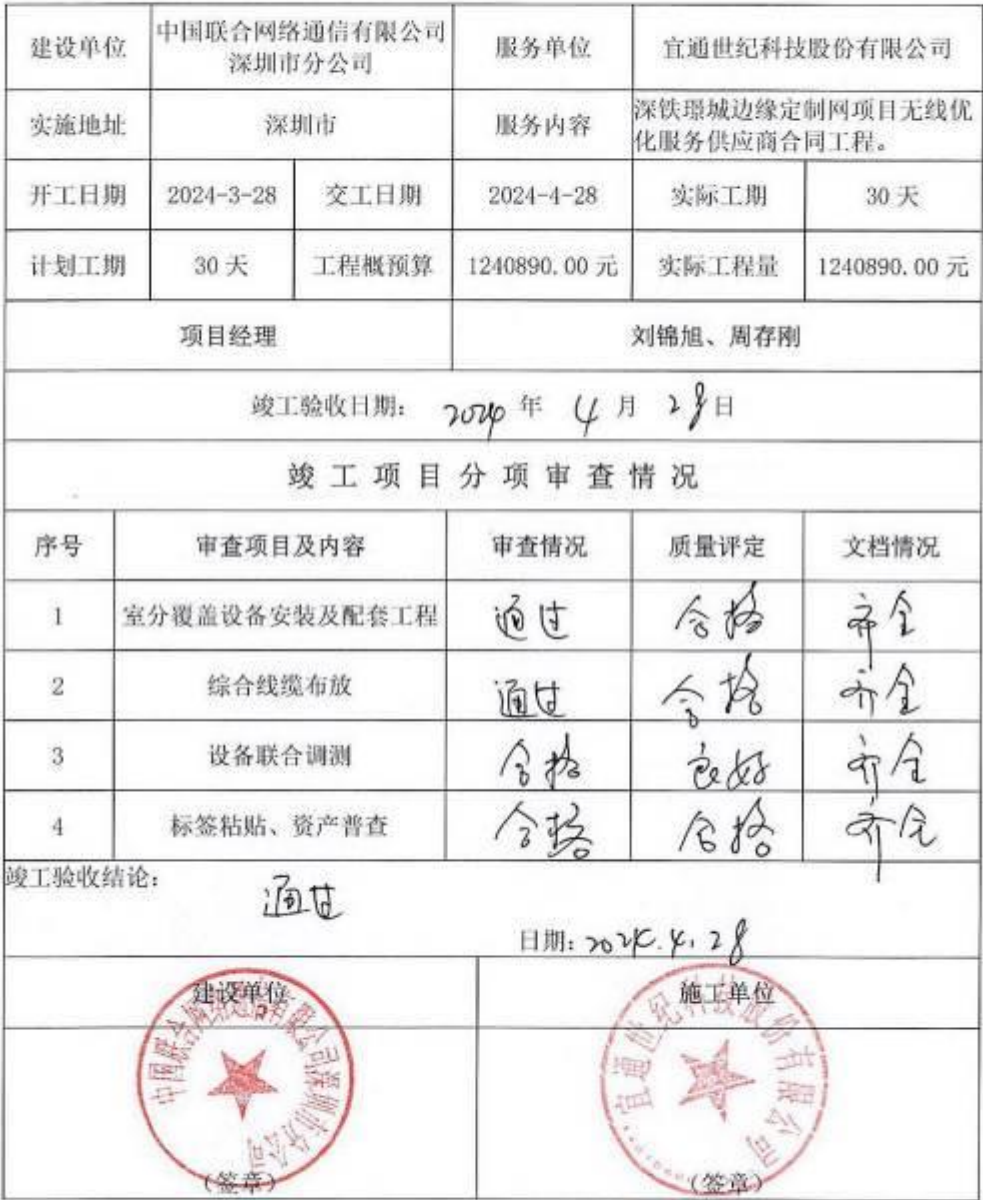 建设单位 中国联合网络通信有限公司 服务单位 宜通世纪科技股份有限公司
深圳市分公司
实施地址 深圳市 服务内容 深铁璟城边缘定制网项目无线优
化服务供应商合同工程。
开工日期 2024-3-28 交工日期 2024-4-28 实际工期 30 天
计划工期 30 天 工程概预算 1240890.00 元 实际工程量 1240890.00 元
项目经理 刘锦旭、周存刚
竣工验收日期: 2024 年 4 月 28 日
竣工项目分项审查情况
序号 审查项目及内容 审查情况 质量评定 文档情况
1 室分覆盖设备安装及配套工程 通过 合格 齐全
2 综合线缆布放 通过 合格 齐全
3 设备联合调测 合格 良好 齐全
4 标签粘贴、资产普查 合格 合格 齐全
竣工验收结论:
通过
日期: 2024.4.28
建设单位 施工单位
中国联合网络通信有限公司深圳市分公司
宜通世纪科技股份有限公司
(签章) (签章)